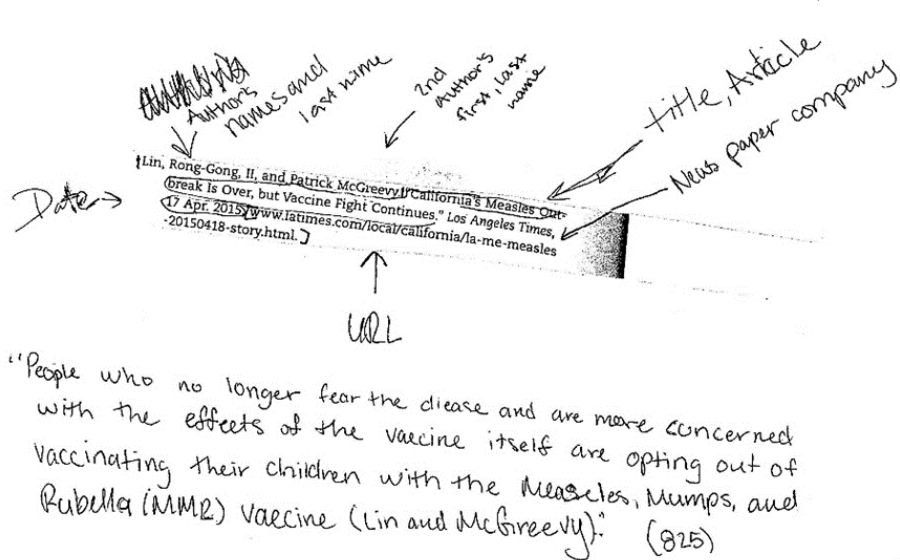 Author's
names and
last name
2nd
author's
first, last
name
title, Article
News paper company
Date
Lin, Rong-Gong, II, and Patrick McGreevy. "California's Measles Out-
break Is Over, but Vaccine Fight Continues." Los Angeles Times,
17 Apr. 2015, www.latimes.com/local/california/la-me-measles
-20150418-story.html.
URL
"People who no longer fear the diease and are more concerned
with the effects of the vaccine itself are opting out of
vaccinating their children with the Measeles, Mumps, and
Rubella (MMR) vaccine (Lin and McGreevy)." (825)